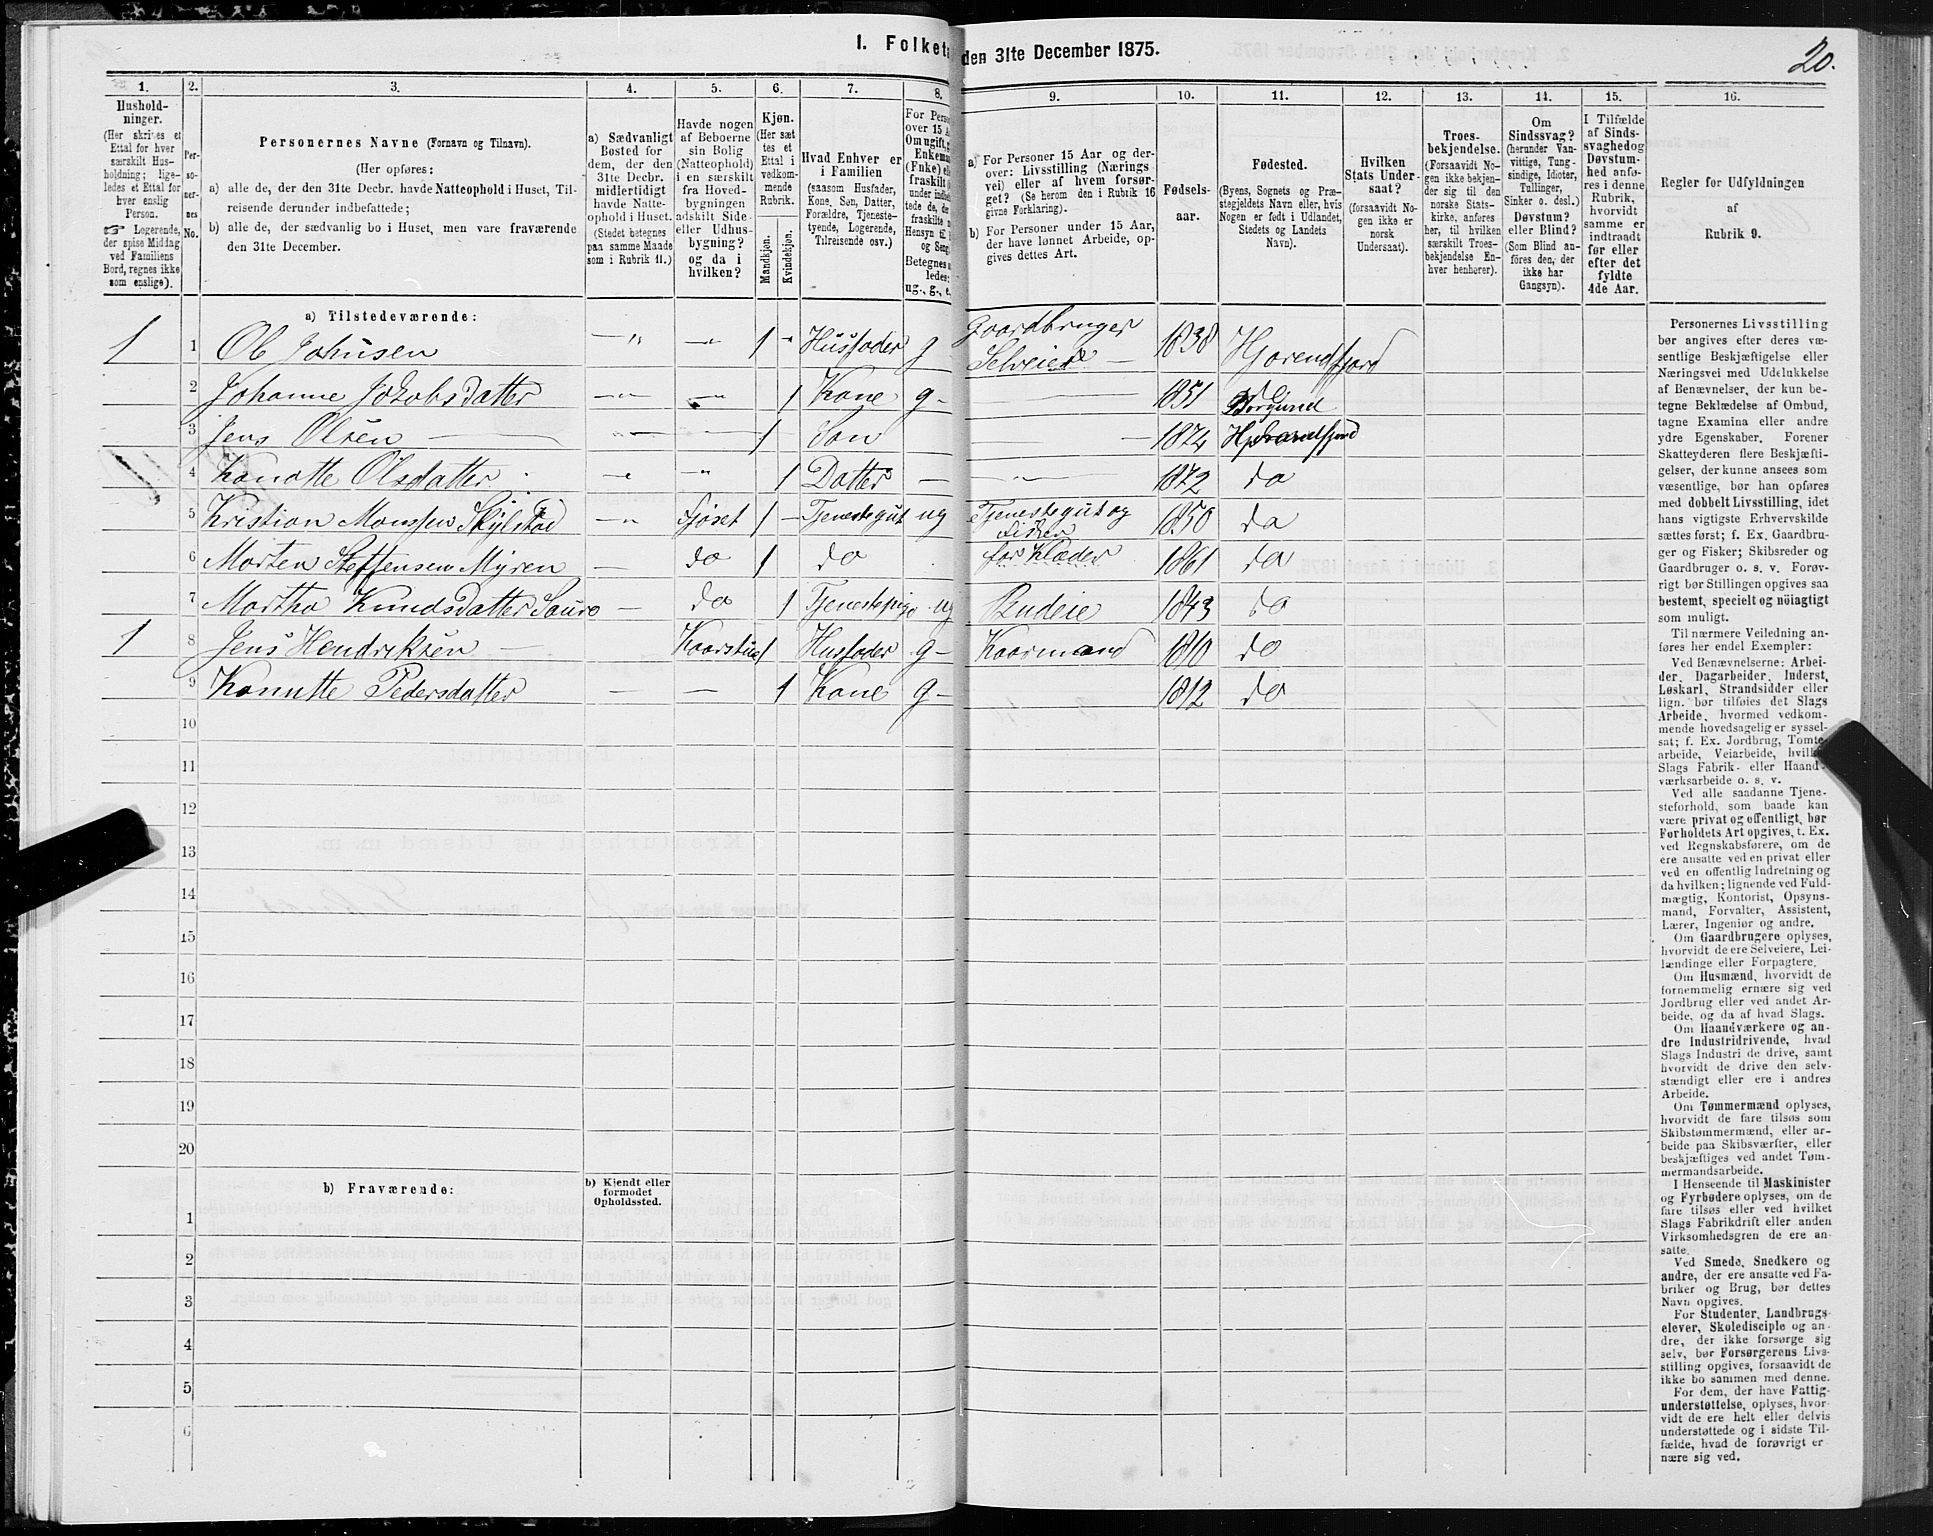 I. Folketæ
den 31te December 1875.
20.
1.
2.
3.
4.
5.
6.
7.
8.
9.
10.
11.
12.
13.
14.
15.
16.
Hushold-
ninger.
(Her skrives et
Ettal for hver
særskilt Hus-
holdning; lige-
ledes et Ettal for
hver enslig
Person.
☞ Logerende,
der spise Middag
ved Familiens
Bord, regnes ikke
som enslige).
Per-
soner-
nes
No.
Personernes Navne (Fornavn og Tilnavn).
(Her opføres:
a) alle de, der den 31te Decbr. havde Natteophold i Huset, Til-
reisende derunder indbefattede;
b) alle de, der sædvanlig bo i Huset, men vare fraværende
den 31te December.
a) Sædvanligt
Bosted for
dem, der den
31te Decbr.
midlertidigt
havde Natte-
ophold i Huset.
(Stedet betegnes
paa samme Maade
som i Rubrik 11.)
Havde nogen
af Beboerne
sin Bolig
(Natteophold)
i en særskilt
fra Hoved-
bygningen
adskilt Side-
eller Udhus-
bygning?
og da i
hvilken?
Kjøn.
(Her sæt-
tes et
Ettal i
vedkom-
mende
Rubrik.
Mandkjøn.
Kvindekjøn.
Hvad Enhver er
i Familien
(saasom Husfader,
Kone, Søn, Datter,
Forældre, Tjeneste-
tyende, Logerende,
Tilreisende osv.)
For Person
over 15 Aa
Om ugift, g
Enkeman
(Enke) elle
fraskilt
under indb
tede de, de
fraskilte
Hensyn til
og Seng
Betegnes
ledes:
ug., g., e.
a) For Personer 15 Aar og der-
over: Livsstilling (Nærings-
vei) eller af hvem forsør-
get? (Se herom den i Rubrik 16
givne Forklaring).
b) For Personer under 15 Aar,
der have lønnet Arbeide, op-
gives dettes Art.
Fødsels-
aar.
Fødested.
(Byens, Sognets og Præ-
stegjeldets Navn eller, hvis
Nogen er født i Udlandet,
Stedets og Landets
Navn).
Hvilken
Stats Under-
saat?
(forsaavidt No-
gen ikke er
norsk
Undersaat).
Troes-
bekjendelse.
(Forsaavidt No-
gen ikke bekjen-
der sig til den
norske Stats-
kirke, anføres
her, til hvilken
særskilt Troes-
bekjendelse En-
hver henhører).
Om
Sindssvag?
(herunder Van-
vittige, Tung-
sindige, Idioter,
Tullinger,
Sinker o. desl.)
Døvstum?
eller Blind?
(Som Blind an-
føres den, der
ikke har
Gangsyn).
I Tilfælde
af Sinds-
svaghed og
Døvstum-
hed anfø-
res i denne
Rubrik,
hvorvidt
samme er
indtraadt
før eller
efter det
fyldte
4de Aar.
Regler for Udfyldningen
af
Rubrik 9.
a) Tilstedeværende:
1 1 Ole Johnsen 1 Husfader g Gaardbruger
Selveier 1838 Hjorendfjord
2 Johanne Jokobsdatter 1 Kone g 1851 Borgund
3 Jens Olsen 1 Søn 1874 Hjorendfjord
4 Konotte Olsdatter 1 Datter 1872 do
5 Kristian Monssen Skylstad Fjøset 1 Tjenestegut ug Tjenestegut og
Fisker 1850 do
6 Morten Steffensen Myren do 1 do for Klæder 1861 do
7 Martha Knudsdatter Saure do 1 Tjenestepige ug Budeie 1843 do
1 8 Jens Hendriksen Kaarstue 1 Husfader g Kaarmand 1810 do
9 Konutte Pedersdatter 1 Kone g 1812 do
10
11
12
13
14
15
16
17
18
19
20
b) Fraværende:
b) Kjendt eller
formodet
Opholdssted.
1
2
3
4
5
6
Personernes Livsstilling
bør angives efter deres væ-
sentlige Beskjæftigelse eller
Næringsvei med Udelukkelse
af Benævnelser, der kun be-
tegne Beklædelse af Ombud,
tagne Examina eller andre
ydre Egenskaber. Forener
Skatteyderen flere Beskjæfti-
gelser, der kunne ansees som
væsentlige, bør han opføres
med dobbelt Livsstilling, idet
hans vigtigste Erhvervskilde
sættes først; f. Ex. Gaardbru-
ger og Fisker; Skibsreder og
Gaardbruger o. s. v. Forøv-
rigt bør Stillingen opgives saa
bestemt, specielt og nöiagtigt
som muligt.
Til nærmere Veiledning an-
føres her endel Exempler:
Ved Benævnelserne: Arbei-
der, Dagarbeider, Inderst,
Løskarl, Strandsidder eller
lign. bør tilføies det Slags
Arbeide, hvormed vedkom-
mende hovedsagelig er syssel-
sat; f. Ex. Jordbrug, Tomte-
arbeide, Veiarbeide, hvilket
Slags Fabrik- eller Haand-
værksarbeide o. s. v.
Ved alle saadanne Tjene-
steforhold, som baade kan
være privat og offentligt, bør
Forholdets Art opgives, t. Ex.
ved Regnskabsførere, om de
ere ansatte ved en privat eller
ved en offentlig Indretning og
da hvilken; lignende ved Fuld-
mægtig, Kontorist, Opsyns-
mand, Forvalter, Assistent,
Lærer, Ingeniør og andre.
Om Gaardbrugere oplyses,
hvorvidt de ere Selveiere, Lei-
lændinge eller Forpagtere.
Om Husmænd, hvorvidt de
fornemmelig ernære sig ved
Jordbrug eller ved andet Ar-
beide, og da af hvad Slags.
Om Haandværkere og an-
dre Industridrivende, hvad
Slags Industri de drive, samt
hvorvidt de drive den selv-
stændigt eller ere i andres
Arbeide.
Om Tømmermænd oplyses,
hvorvidt de fare tilsøs som
Skibstømmermænd, eller ar-
beide paa Skibsværfter, eller
beskjæftiges ved andet Tøm-
mermandsarbeide.
I Henseende til Maskinister
og Fyrbødere oplyses, om de
fare tilsøs eller ved hvilket
Slags Fabrikdrift eller anden
Virksomhedsgren de ere an-
satte.
Ved Smede, Snedkere og
andre, der ere ansatte ved Fa-
briker og Brug, bør dettes
Navn opgives.
For Studenter, Landbrugs-
elever, Skoledisciple og an-
dre, der ikke forsørge sig
selv, bør Forsørgerens Livs-
stilling opgives, forsaavidt de
ikke bo sammen med denne.
For dem, der have Fattig-
understøttelse, oplyses, hvor-
vidt de ere helt eller delvis
understøttede og i sidste Til-
fælde, hvad de forøvrigt er-
nære sig ved.